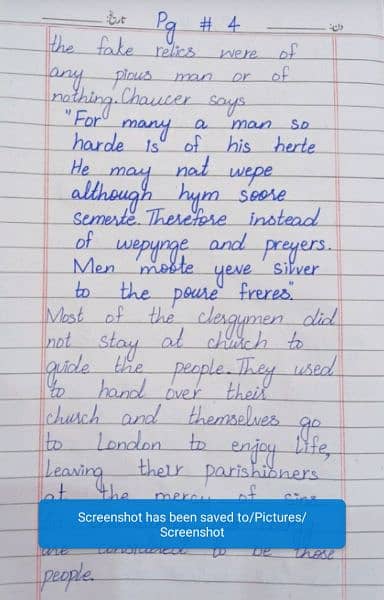 تاریخ: Pg # 4 دن:
the fake relics were of
any pious man or of
nothing. Chaucer says
"For many a man so
harde is of his herte
He may nat wepe
although hym soore
semerte. Therefore instead
of wepynge and preyers.
Men moote yeve silver
to the poure freres".
Most of the clergymen did
not stay at church to
guide the people. They used
to hand over their
church and themselves go
to London to enjoy life,
Leaving their parishioners
at the mercy of sins
Screenshot has been saved to/Pictures/
Screenshot
to be those
people.